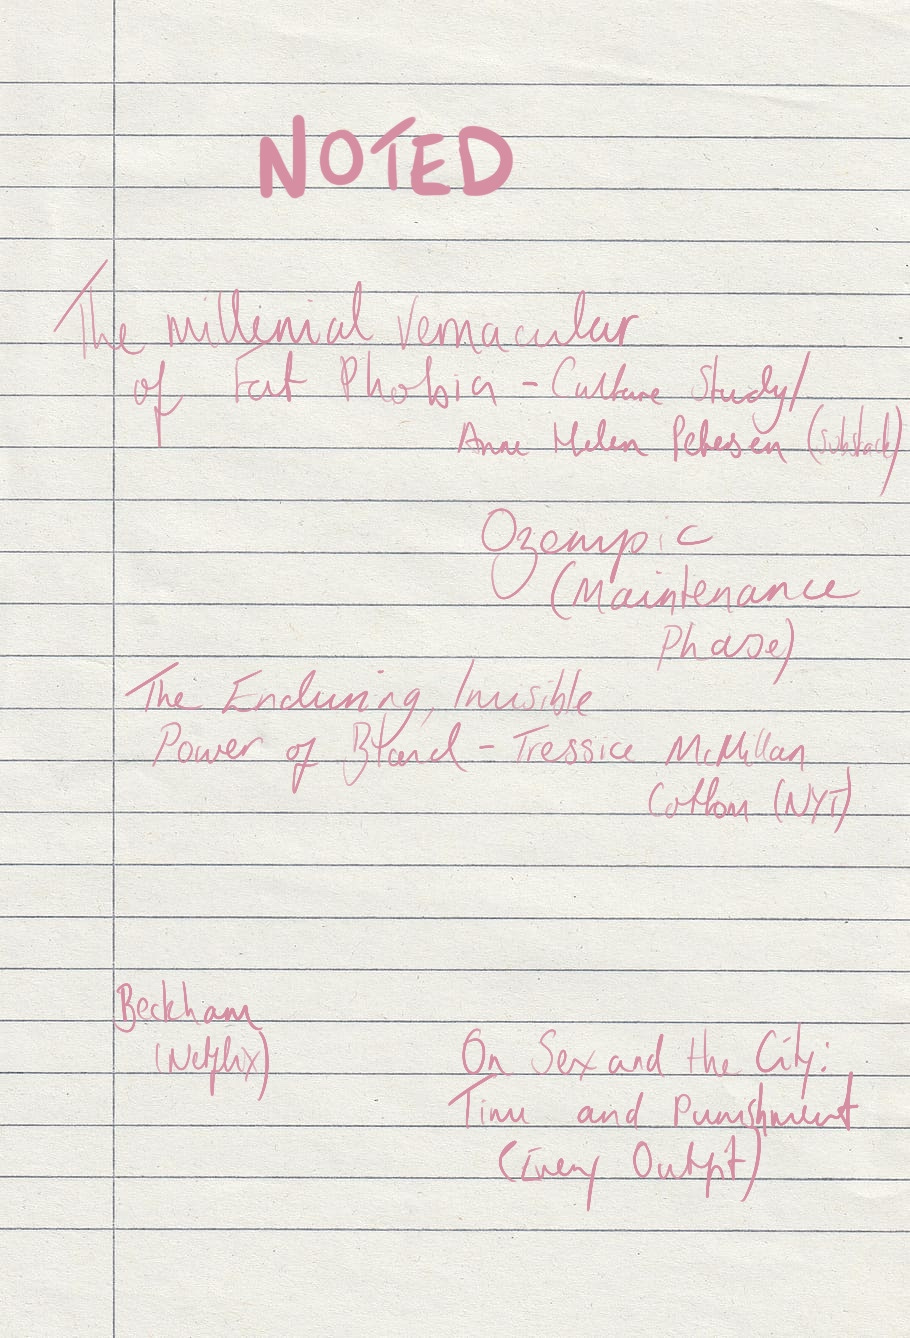 NOTED
The millenial vernacular
of Fat Phobia - Culture Study/
Anne Helen Petersen (Substack)
Ozempic
(Maintenance
Phase)
The Enduring, Invisible
Power of Bland - Tressice McMillan
Cottom (NYT)
Beckham
(Netflix)
On Sex and the City:
Time and Punishment
(Every Outfit)